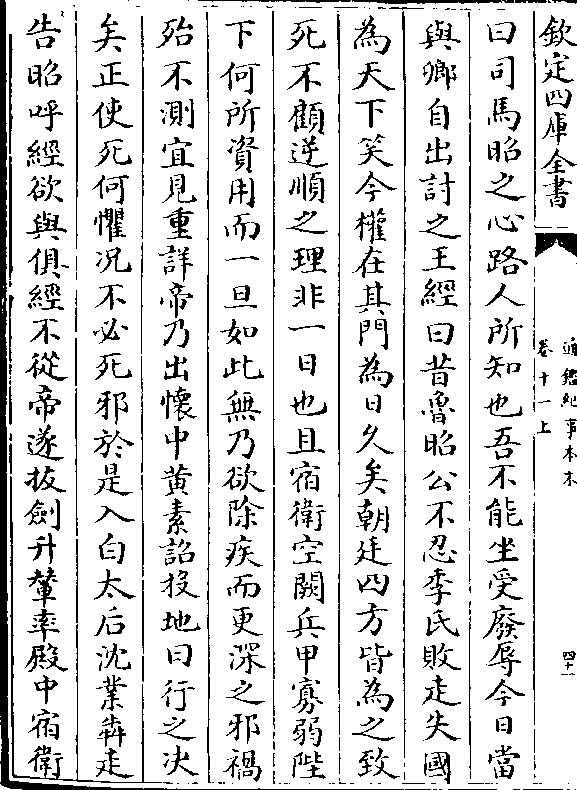 欽定四庫全書
通鑑紀事本末
卷十一上
四十一
曰司馬昭之心路人所知也吾不能坐受廢辱今日當
與卿自出討之王經曰昔魯昭公不忍季氏敗走失國
為天下笑今權在其門為日久矣朝廷四方皆為之致
死不顧逆順之理非一日也且宿衛空闕兵甲寡弱陛
下何所資用而一旦如此無乃欲除疾而更深之邪禍
殆不測宜見重詳帝乃出懷中黄素詔投地曰行之决
矣正使死何懼况不必死邪於是入白太后沈業犇走
告昭呼經欲與俱經不從帝遂拔劍升輦率殿中宿衛